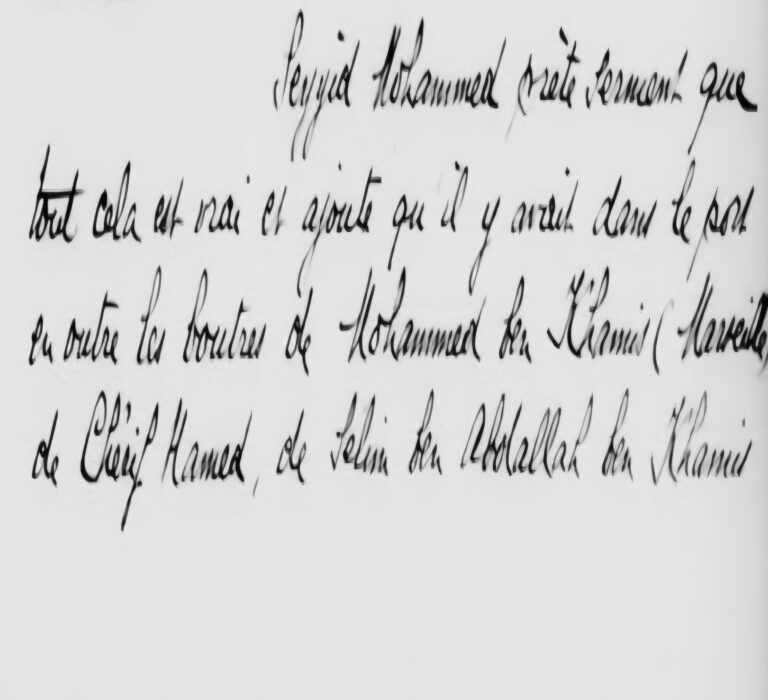 Seyyid Mohammed prète serment que
tout cela est vrai et ajoute qu'il y avait dans le port
en outre les boutres de Mohammed ben Khamis (Marseille)
de Chérif Hamed, de Selim ben Abdallah ben Khamis